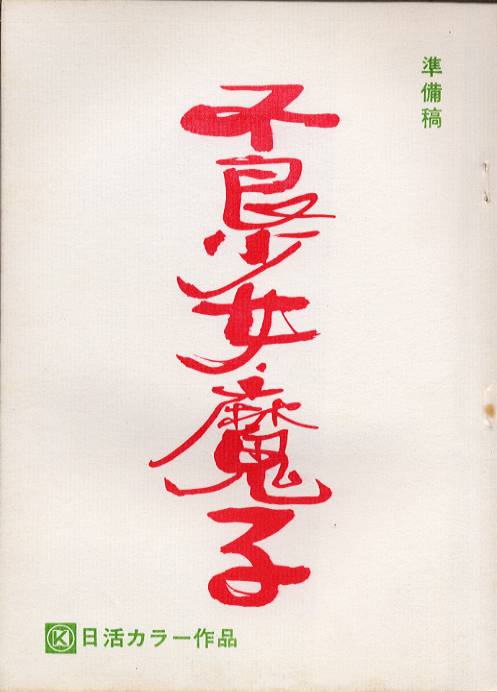 準備稿
不良少女魔子
K日活カラー作品